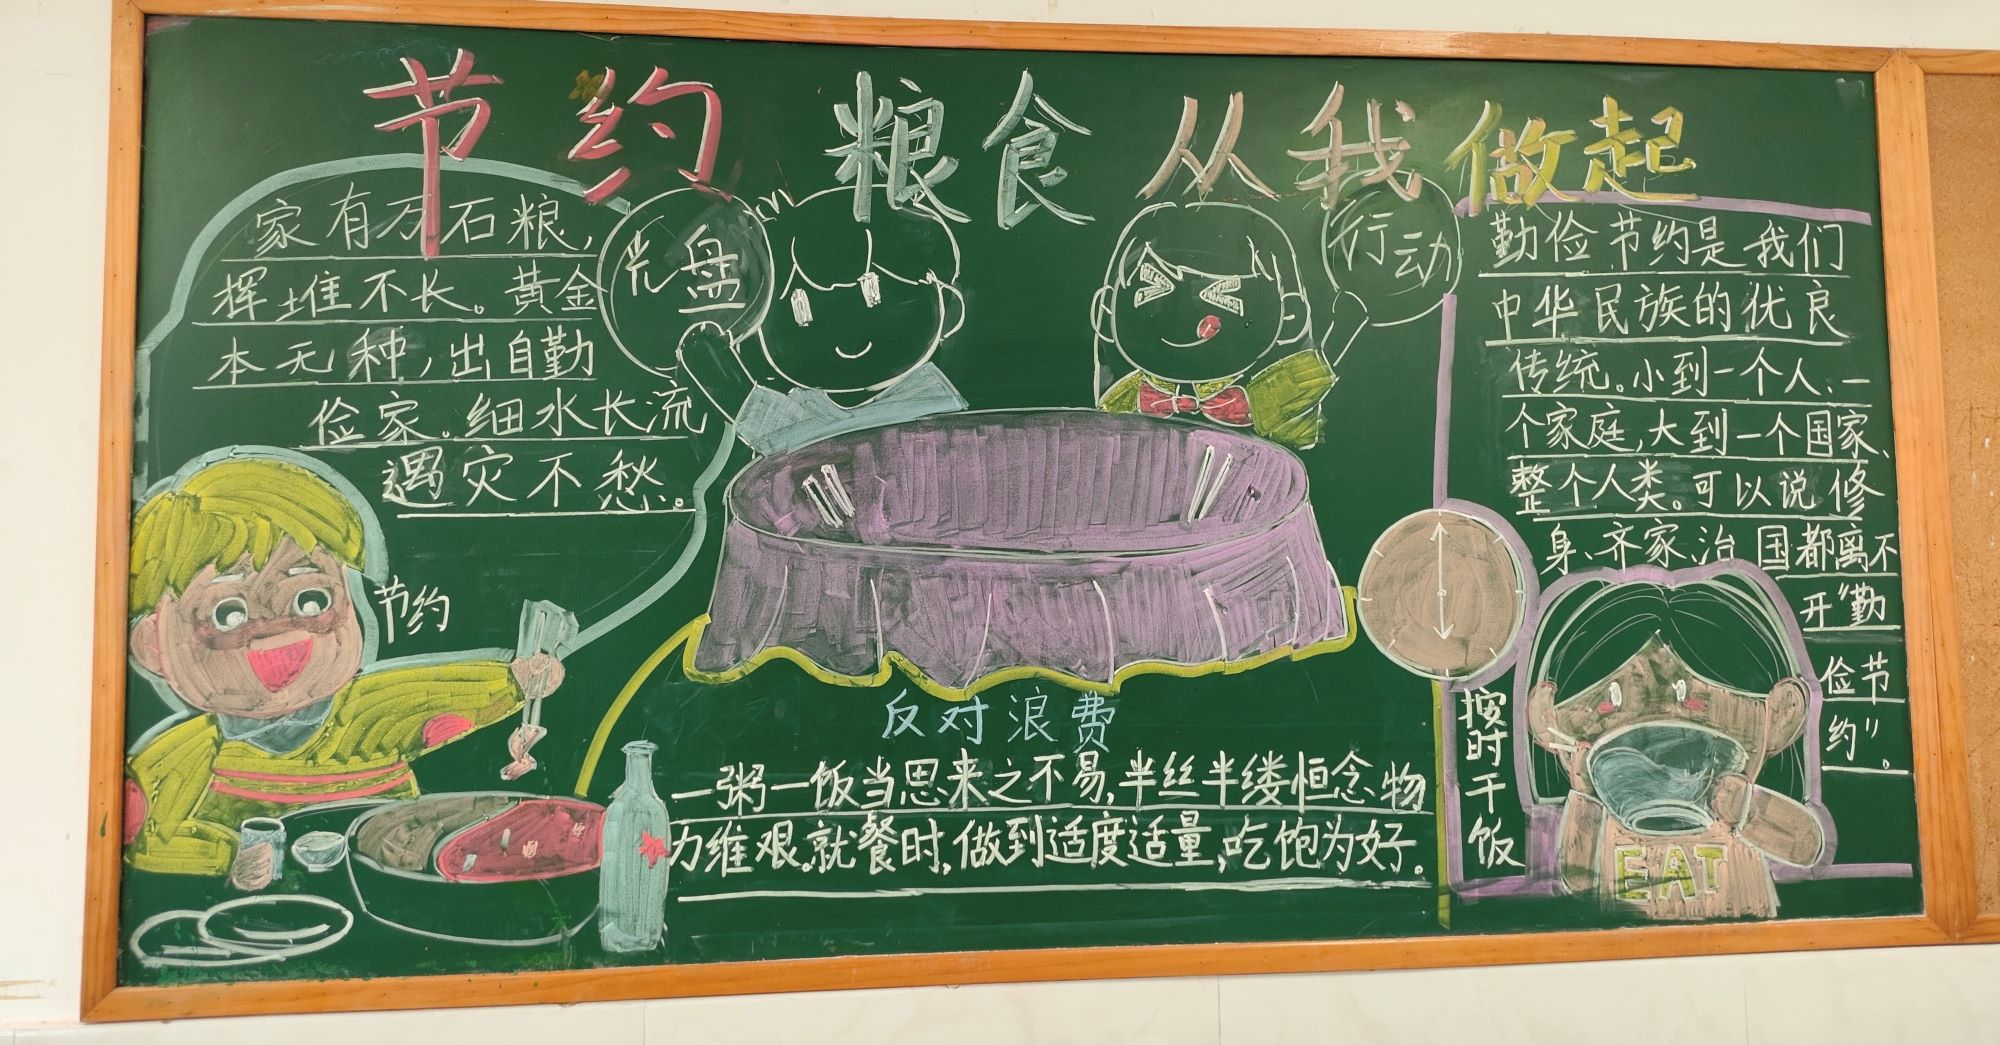 节约粮食从我做起
家有万石粮,
挥堆不长。黄金
本无种,出自勤
俭家。细水长流
遇灾不愁。
光盘
行动
节约
反对浪费
一粥一饭当思来之不易,半丝半缕恒念物
力维艰。就餐时,做到适度适量,吃饱为好。
勤俭节约是我们
中华民族的优良
传统。小到一个人、一
个家庭,大到一个国家、
整个人类。可以说修
身、齐家、治国都离不
开“勤
俭节
约”。
按时干饭
EAT